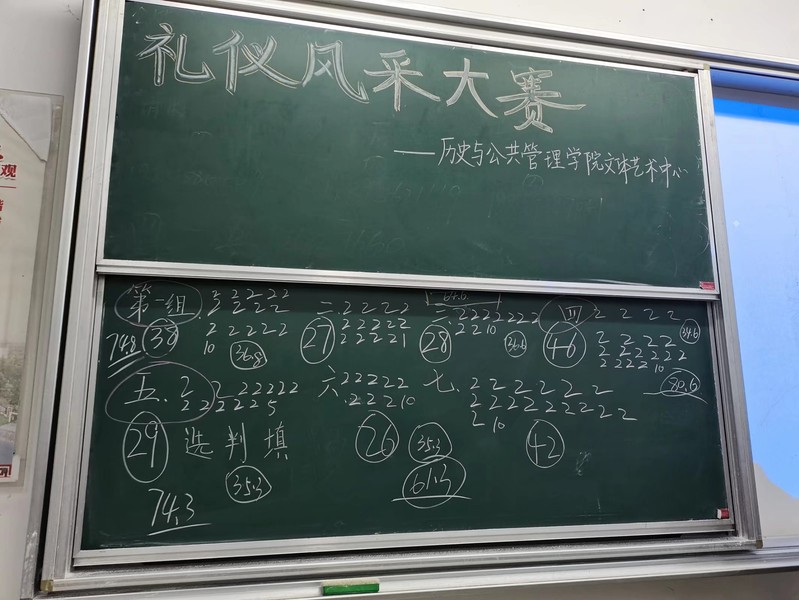 礼仪风采大赛
——历史与公共管理学院文体艺术中心
第一组 2 2 2 2 2
2 2 2 2
2 2 2 2 2
10
38
74.8
36.8
二. 2 2 2 2
2 2 2 2 2
2 2 2 2 1
27
64.6
三 2 2 2 2 2 2 2
2 2 10
28
36.6
四 2 2 2 2
2 2 2 2
2 2 2 2 2 2
2 2 2 2 10
46
34.6
80.6
五. 2 2 2 2 2 2 2
2 2 2 2 2 5
29 选 判 填
35.3
74.3
六 2 2 2 2 2
2 2 2 10
26
35.3
61.3
七. 2 2 2 2 2 2
2 2 2 2 2 2 2 2
2 10
42
观